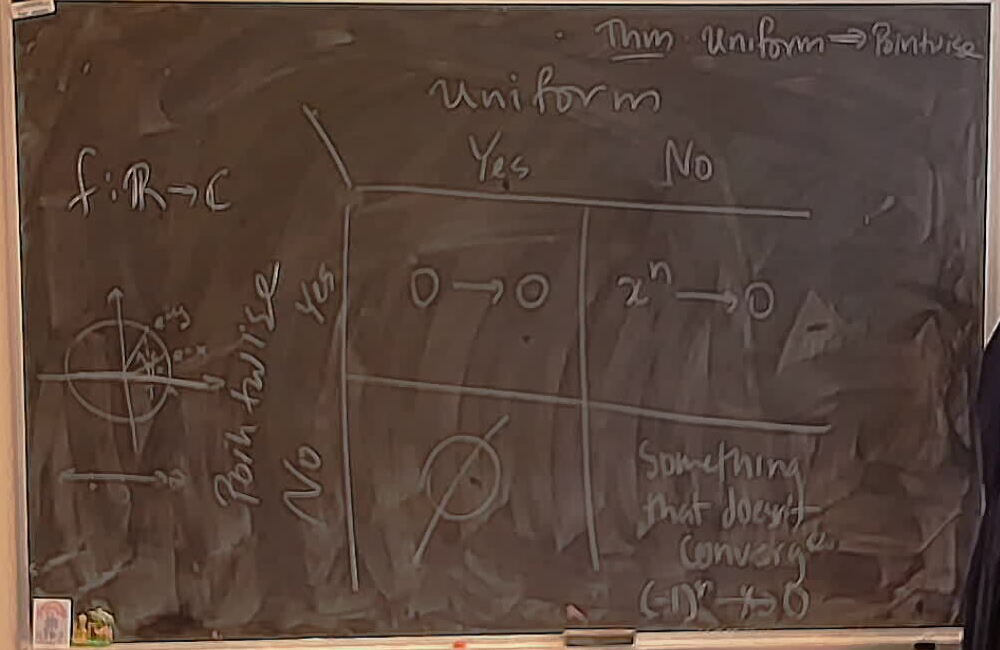 Thm Uniform ⇒ Pointwise
Uniform
Yes No
f: ℝ → ℂ
Pointwise
Yes
0 → 0
xⁿ → 0
No
∅
Something
that doesn't
converge
(-1)ⁿ ↛ 0